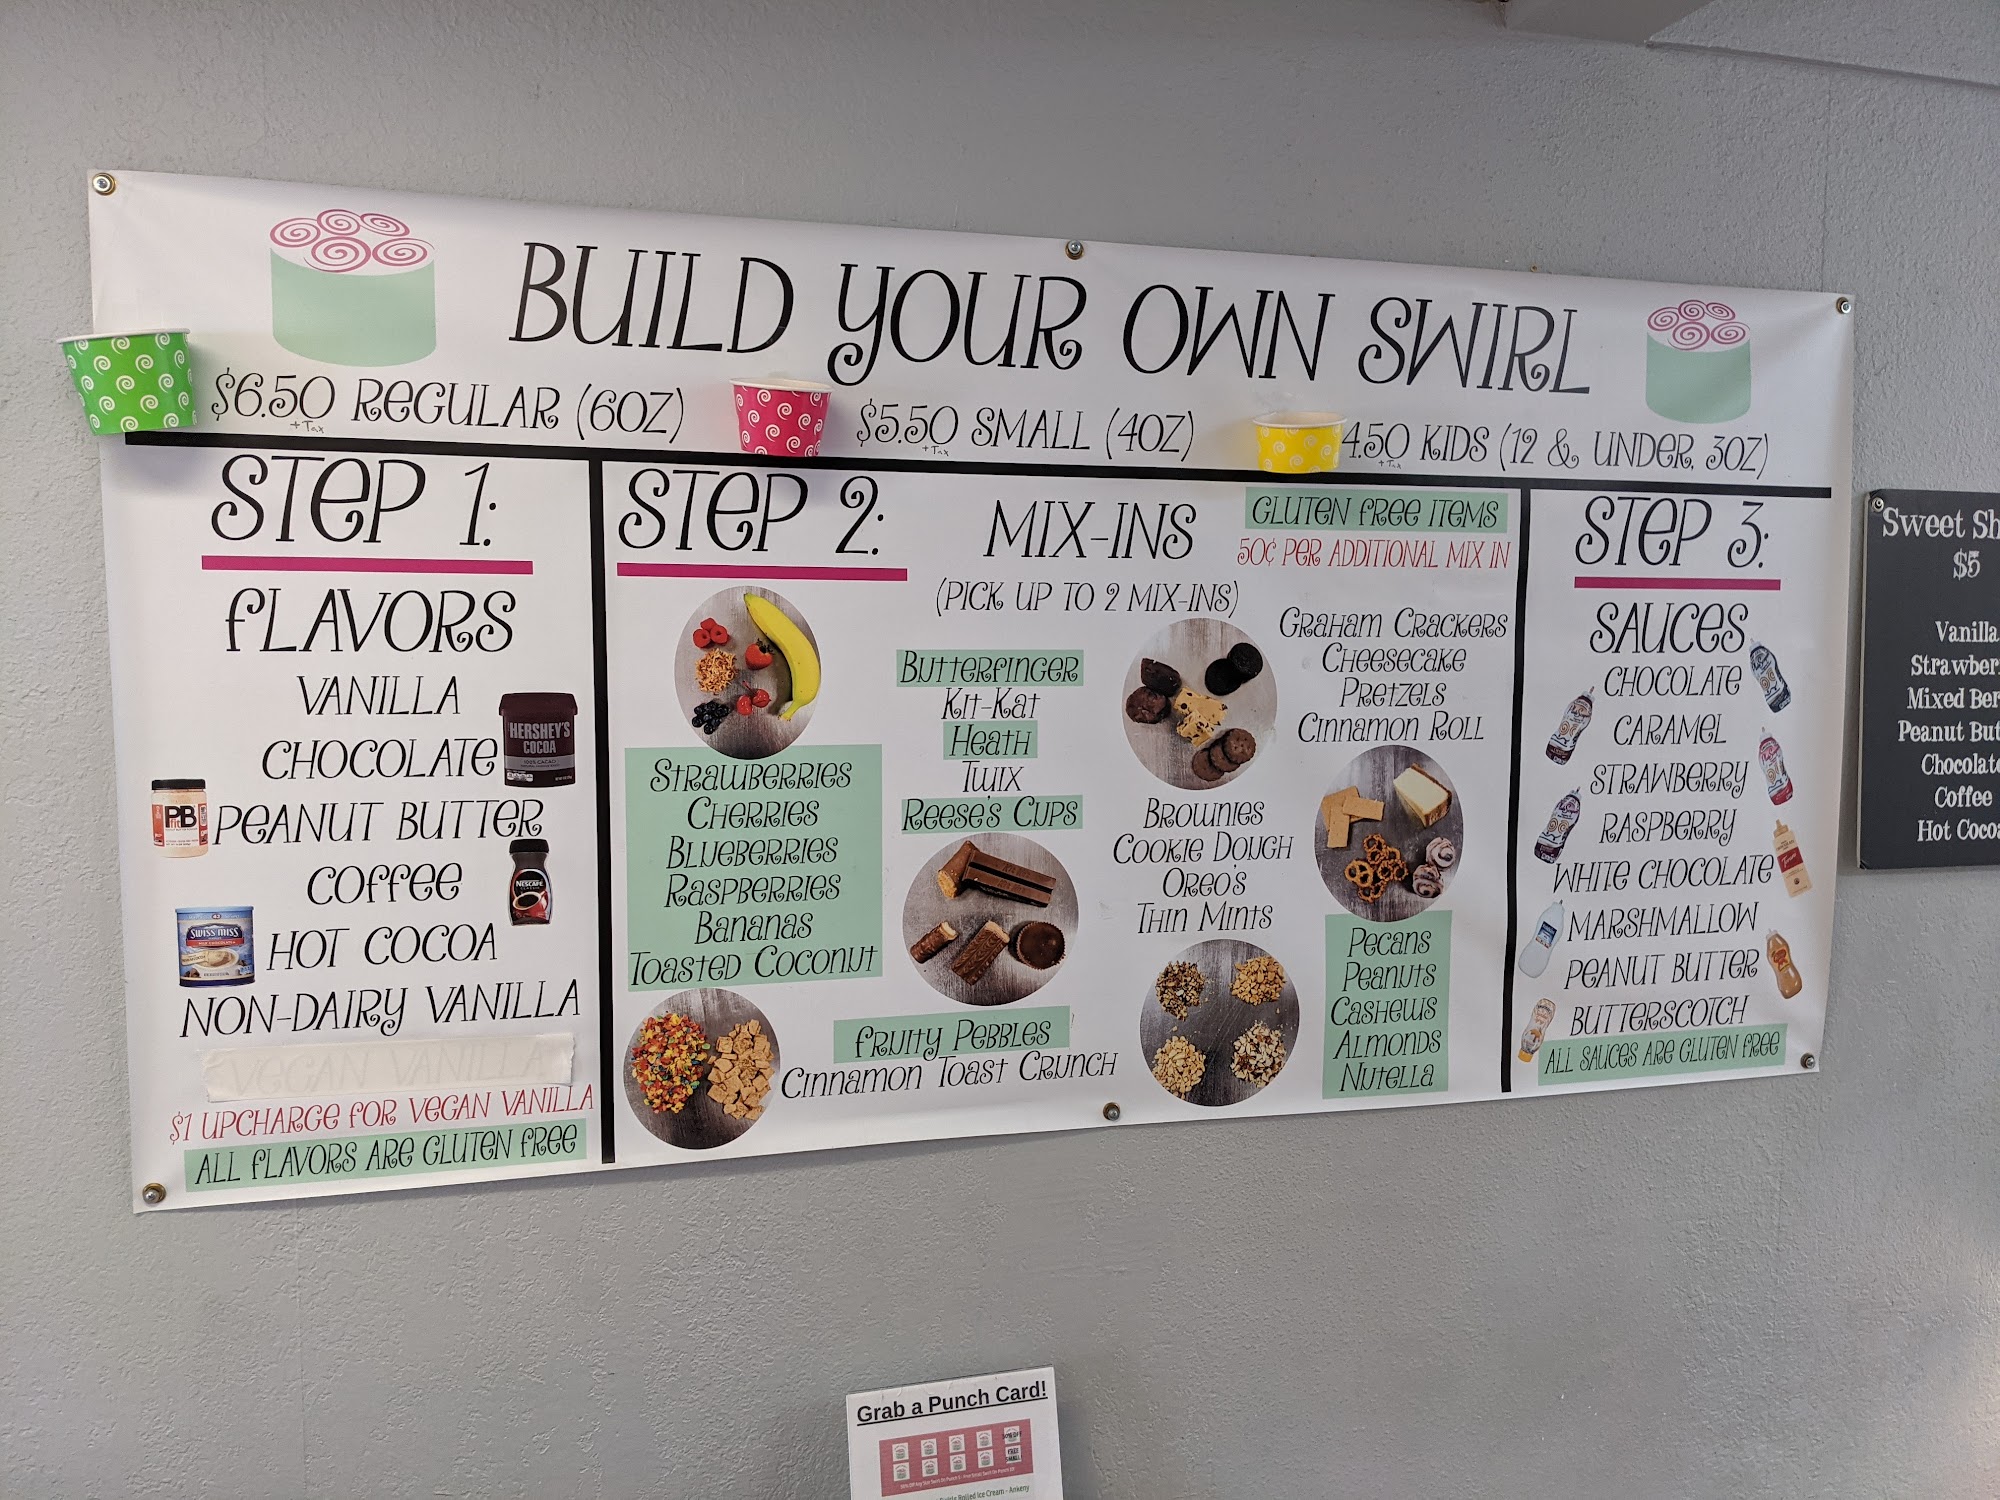 BUILD YOUR OWN SWIRL
$6.50 REGULAR (6OZ)
+ Tax
$5.50 SMALL (4OZ)
+ Tax
4.50 KIDS (12 & UNDER, 3OZ)
+ Tax
STEP 1:
FLAVORS
VANILLA
CHOCOLATE
HERSHEY'S
COCOA
PEANUT BUTTER
PB
fit
COFFEE
NESCAFÉ
HOT COCOA
SWISS MISS
NON-DAIRY VANILLA
VEGAN VANILLA
$1 UPCHARGE FOR VEGAN VANILLA
ALL FLAVORS ARE GLUTEN FREE
STEP 2:
MIX-INS
(PICK UP TO 2 MIX-INS)
GLUTEN FREE ITEMS
50¢ PER ADDITIONAL MIX IN
Strawberries
Cherries
Blueberries
Raspberries
Bananas
Toasted Coconut
Butterfinger
Kit-Kat
Heath
Twix
Reese's Cups
Fruity Pebbles
Cinnamon Toast Crunch
Brownies
Cookie Dough
Oreo's
Thin Mints
Graham Crackers
Cheesecake
Pretzels
Cinnamon Roll
Pecans
Peanuts
Cashews
Almonds
Nutella
STEP 3:
SAUCES
CHOCOLATE
CARAMEL
STRAWBERRY
RASPBERRY
WHITE CHOCOLATE
MARSHMALLOW
PEANUT BUTTER
BUTTERSCOTCH
ALL SAUCES ARE GLUTEN FREE
Sweet Sh
$5
Vanilla
Strawber
Mixed Ber
Peanut But
Chocolate
Coffee
Hot Cocoa
Grab a Punch Card!
Rolled Ice Cream - Ankeny